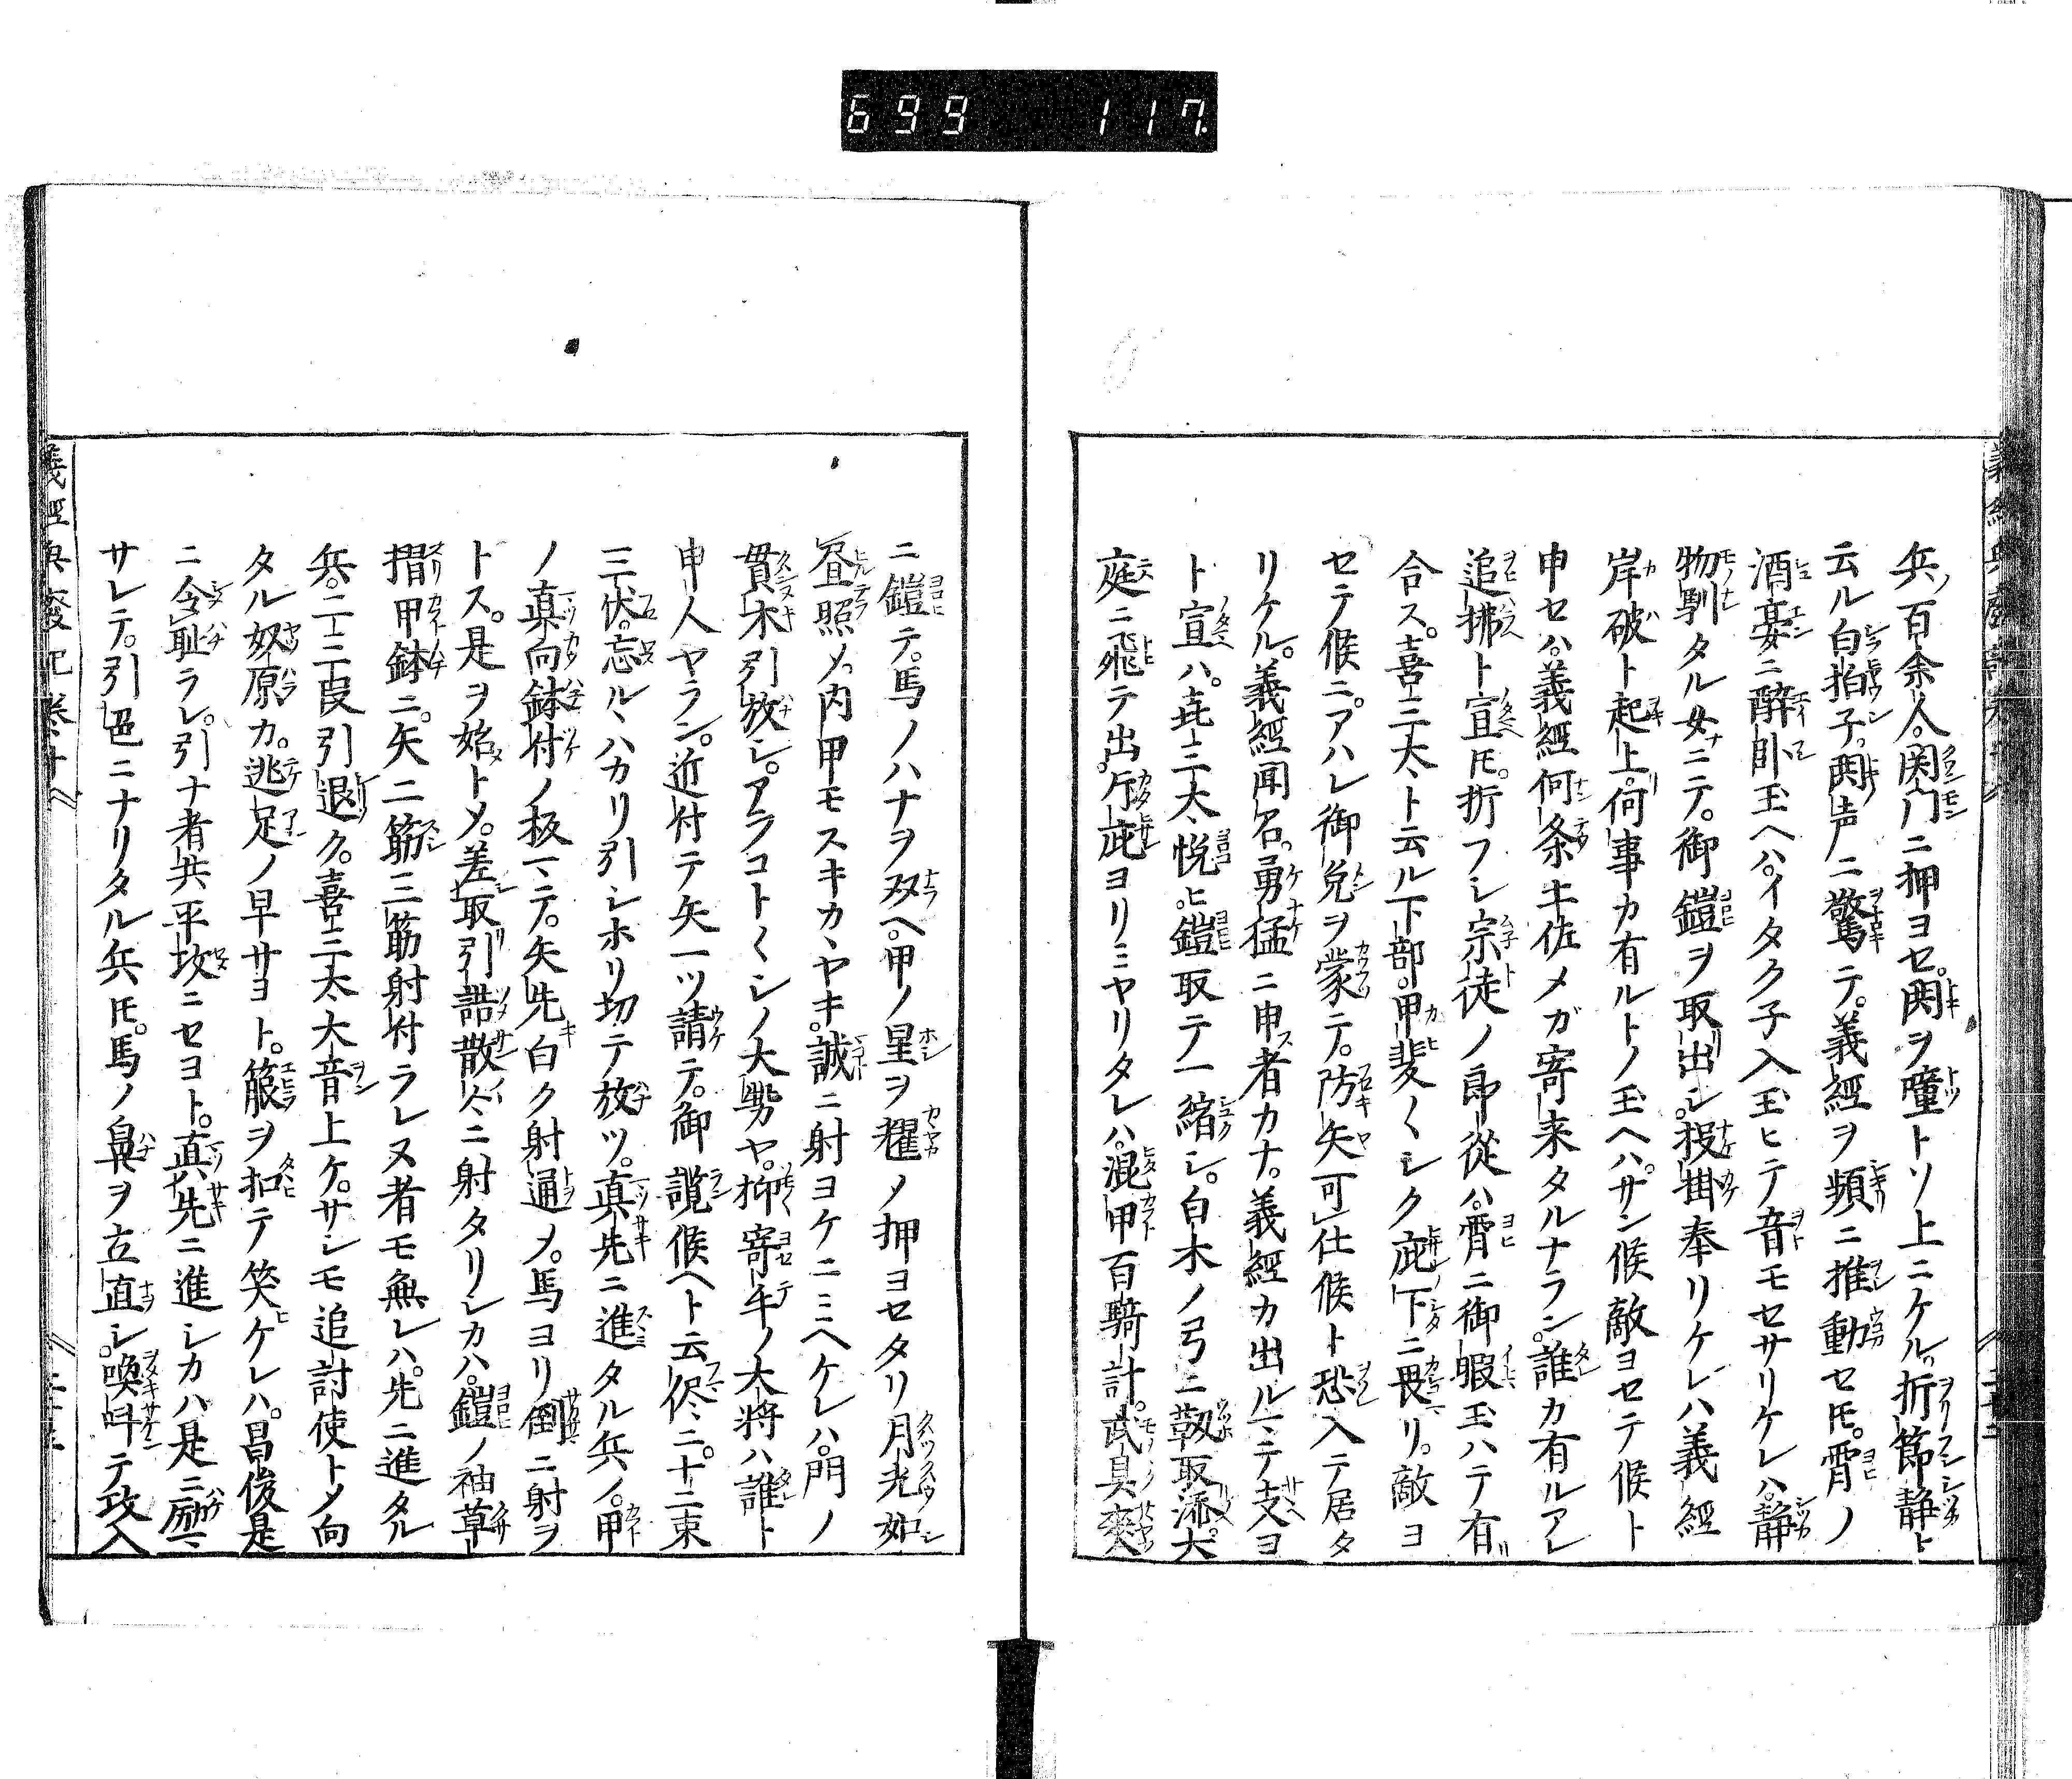 699 117
兵百余人。関門ニ押ヨセ。鬨ヲ瞳トソ上ニケル。折節静ト
云ル白拍子。鬨声ニ驚テ。義經ヲ頻ニ推動セ𪜈。宵ノ
酒宴ニ酔卧玉ヘハ。イタク子入玉ヒテ音モセサリケレハ。静
物馴タル女ニテ。御鎧ヲ取出シ。投掛奉リケレハ義經
岸破ト起上。何事カ有ルトノ玉ヘハ。サン候敵ヨセテ候ト
申セハ。義經何条土佐メガ寄来タルナラン。誰カ有ルアレ
追拂ト宣𪜈。折フシ宗徒ノ郎從ハ。宵ニ御暇玉ハテ有
合ス。喜三太ト云ル下部。甲斐〱シク庇下ニ畏リ。敵ヨ
セテ候ニ。アハレ御免ヲ蒙テ。防矢可仕候ト恐入テ居タ
リケル。義經聞召。勇猛ニ申者カナ。義經カ出ルマテ支ヨ
ト宣ハ。㐂三太悦ヒ。鎧取テ一縮シ。白木ノ弓ニ靱取添。大
庭ニ飛テ出。片庇ヨリミヤリタレハ。混甲百騎計。武具爽
ニ鎧テ。馬ノハナヲ双ヘ。甲ノ星ヲ耀ノ押ヨセタリ月光如
昼照〆。内甲モスキカヽヤキ。誠ニ射ヨケニミヘケレハ。門ノ
貫木引放シ。アラコト〱シノ大勢ヤ。抑寄手ノ大将ハ誰ト
申人ヤラン。近付テ矢一ツ請テ。御覧候ヘト云侭ニ。十二束
三伏。忘ルヽハカリ引シホリ切テ放ツ。真先ニ進タル兵ノ。甲
ノ真向鉢付ノ板マテ。矢先白ク射通〆。馬ヨリ倒ニ射ヲ
トス。是ヲ始ト〆。差取引詰散々ニ射タリシカハ。鎧ノ袖草
摺甲鉢ニ。矢二筋三筋射付ラレヌ者モ無レハ。先ニ進タル
兵。二三段引退ク。喜三太大音上ケ。サシモ追討使ト〆向
タル奴原カ。逃足ノ早サヨト。箙ヲ扣テ笑ケレハ。昌俊是
ニ含恥ラレ。引ナ者共平攻ニセヨト。真先ニ進シカハ是ニ励マ
サレテ。引色ニナリタル兵𪜈。馬ノ鼻ヲ立直シ。喚呌テ攻入
義經興廢記卷十